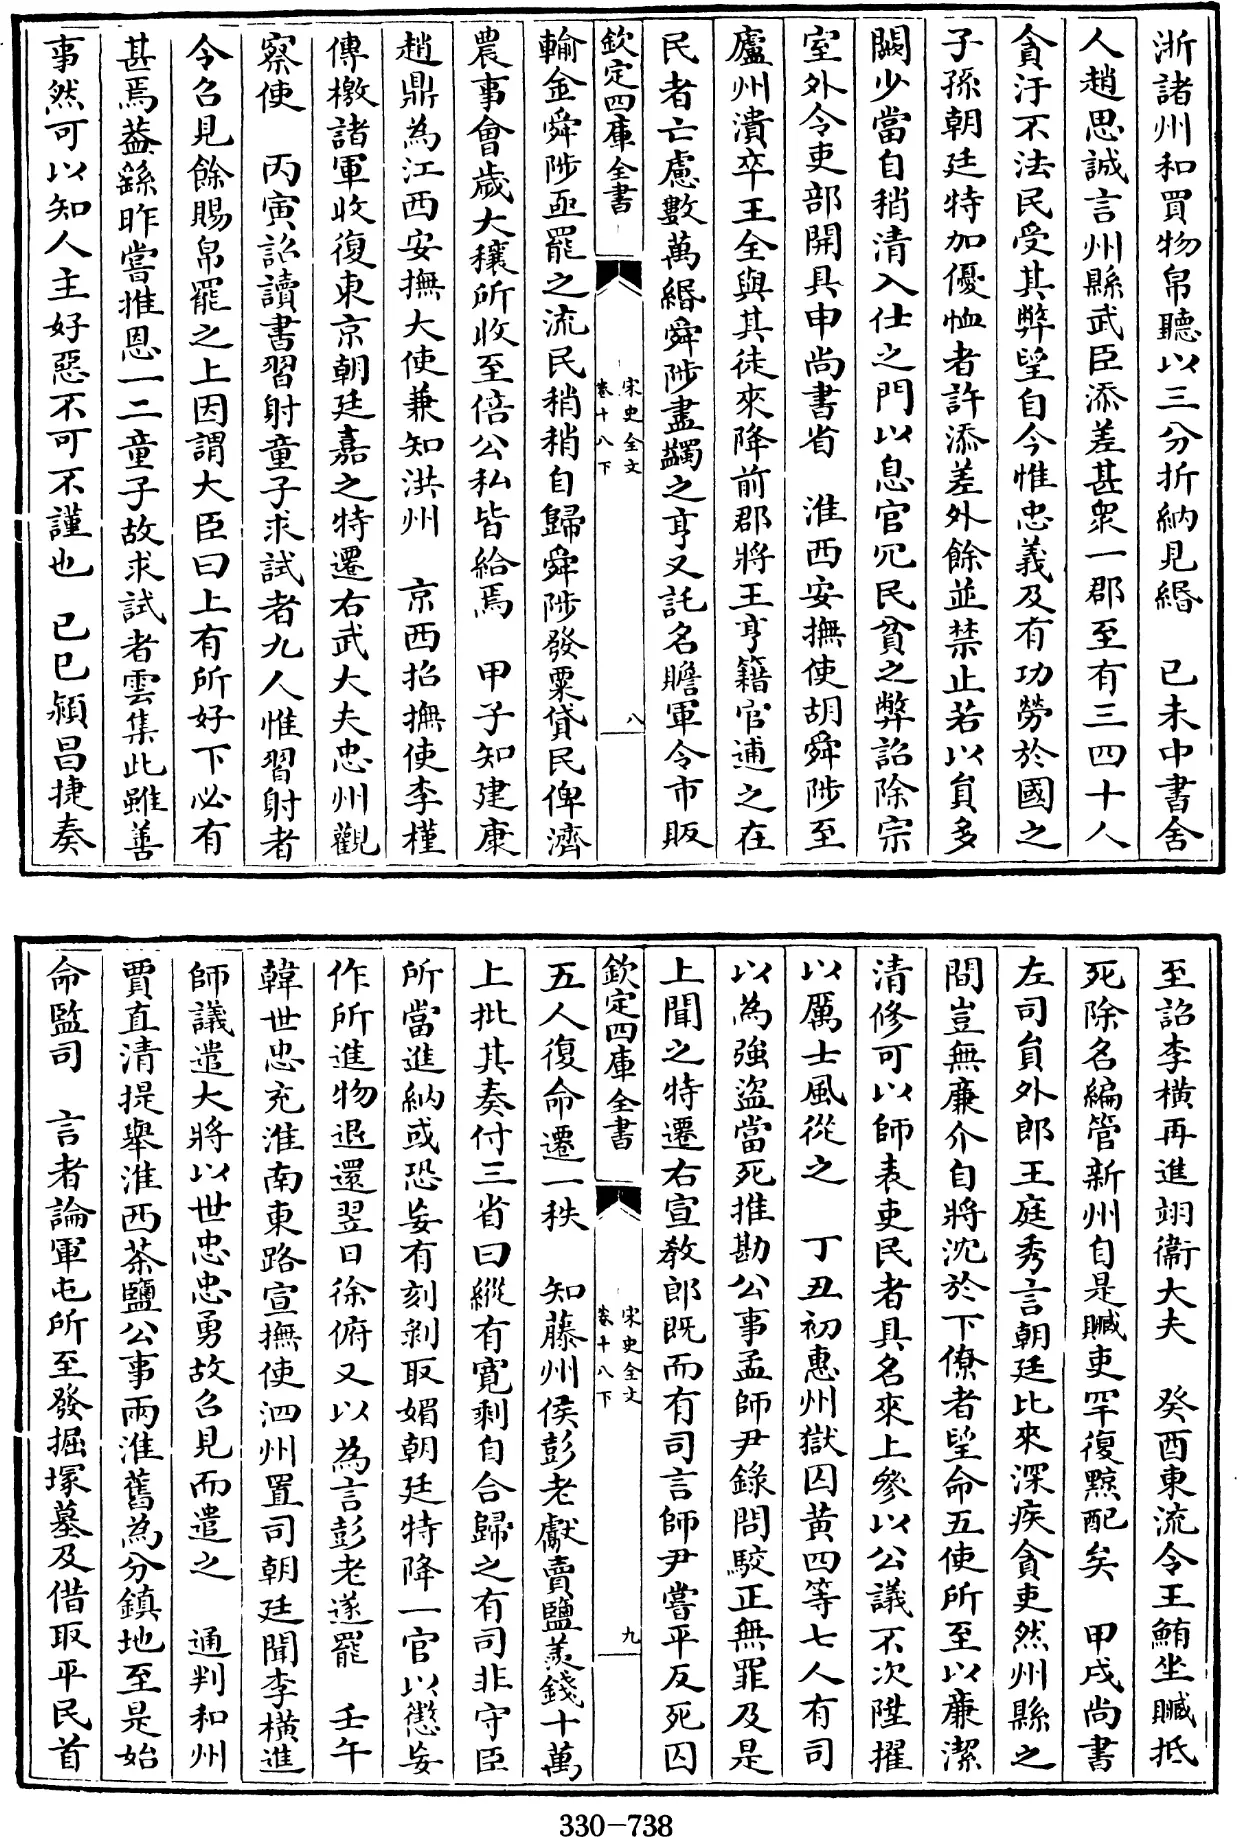 浙諸州和買物帛聽以三分折納見緡　己未中書舍
人趙思誠言州縣武臣添差甚衆一郡至有三四十人
貪汙不法民受其弊望自今惟忠義及有功勞於國之
子孫朝廷特加優恤者許添差外餘並禁止若以員多
闕少當自稍清入仕之門以息官冗民貧之弊詔除宗
室外令吏部開具申尚書省　淮西安撫使胡舜陟至
廬州潰卒王全與其徒來降前郡將王亨籍官逋之在
民者亡慮數萬緡舜陟盡蠲之亨又託名贍軍令市販
欽定四庫全書
宋史全文
卷十八下
八
輸金舜陟亟罷之流民稍稍自歸舜陟發粟貸民俾濟
農事會歲大穰所收至倍公私皆給焉　甲子知建康
趙鼎為江西安撫大使兼知洪州　京西招撫使李橫
傳檄諸軍收復東京朝廷嘉之特遷右武大夫忠州觀
察使　丙寅詔讀書習射童子求試者九人惟習射者
令召見餘賜帛罷之上因謂大臣曰上有所好下必有
甚焉葢繇昨嘗推恩一二童子故求試者雲集此雖善
事然可以知人主好惡不可不謹也　己巳潁昌捷奏
至詔李橫再進翊衞大夫　癸酉東流令王鮪坐贓抵
死除名編管新州自是贓吏罕復黥配矣　甲戌尚書
左司員外郎王庭秀言朝廷比來深疾貪吏然州縣之
間豈無廉介自將沈於下僚者望命五使所至以廉潔
清修可以師表吏民者具名來上參以公議不次陞擢
以厲士風從之　丁丑初惠州獄囚黄四等七人有司
以為強盜當死推勘公事孟師尹錄問駮正無罪及是
上聞之特遷右宣教郎既而有司言師尹嘗平反死囚
欽定四庫全書
宋史全文
卷十八下
九
五人復命遷一秩　知藤州侯彭老獻賣鹽羨錢十萬
上批其奏付三省曰縱有寛剩自合歸之有司非守臣
所當進納或恐妄有刻剥取媚朝廷特降一官以懲妄
作所進物退還翌日徐俯又以為言彭老遂罷　壬午
韓世忠充淮南東路宣撫使泗州置司朝廷聞李橫進
師議遣大將以世忠忠勇故召見而遣之　通判和州
賈直清提舉淮西茶鹽公事兩淮舊為分鎮地至是始
命監司　言者論軍屯所至發掘塚墓及借取平民首
330-738